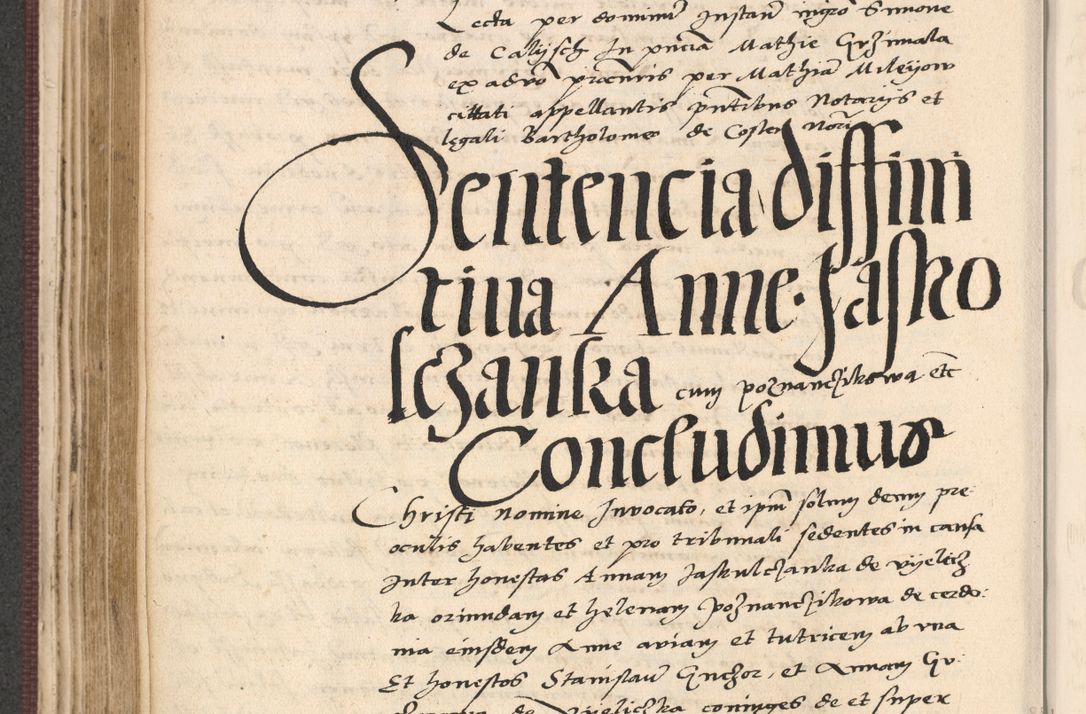 Lecta per dominum Instan ingro Simone
de Calijsch In pncia Mathie Grzimala
ex adro procuris per Mathia Mileyow
cittati appellantis pntibus Notarijs et
legali Bartholomeo de Costen
Sentencia diffini
tiua Anne Jasko
lczanka cum poznanczikowa etc
Concludimus
Christi nomine Invocato, et ipm solum deum pre
oculis habentes et pro tribunali sedentes in causa
Inter honestas Annam Jaskulczanka de vyelicz
ka oriundam et helenam poznanczikowa de cerdo:
nia eiusdem Anne aviam et tutricem ab vna
Et honestos Stanislaum Gnchor, et Annam Gr
de Vyeliczka coniuges de et super